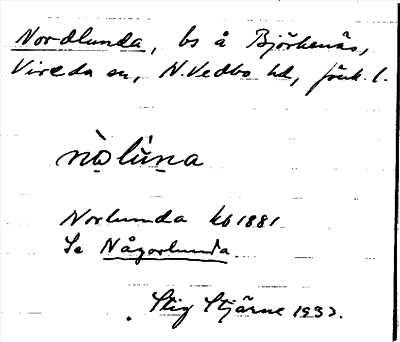 Nordlunda, bs å Björkenäs,
Vireda sn, N. Vedbo hd, Jönk. l.
nò̤lúna
Norlunda kb 1881
Se Någorlunda.
Stig Stjärne 1932.